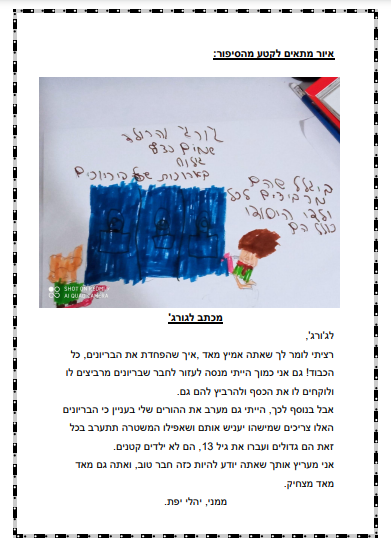 איור מתאים לקטע מהסיפור:
ג'ורג' והרולד
שמים קצף
גילוח
בארונות של בריונים
בגלל שהם
מרביצים לכל
ילדי היסודי
כולל הם
SHOT ON REDMI
AI QUAD CAMERA
מכתב לגורג'
לג'ורג',
רציתי לומר לך שאתה אמיץ מאד ,איך שהפחדת את הבריונים, כל
הכבוד! גם אני כמוך הייתי מנסה לעזור לחבר שבריונים מרביצים לו
ולוקחים לו את הכסף ולהרביץ להם גם.
אבל בנוסף לכך, הייתי גם מערב את ההורים שלי בעניין כי הבריונים
האלו צריכים שמישהו יעניש אותם ושאפילו המשטרה תתערב בכל
זאת הם גדולים ועברו את גיל 13, הם לא ילדים קטנים.
אני מעריץ אותך שאתה יודע להיות כזה חבר טוב, ואתה גם מאד
מאד מצחיק.
ממני, יהלי יפת.